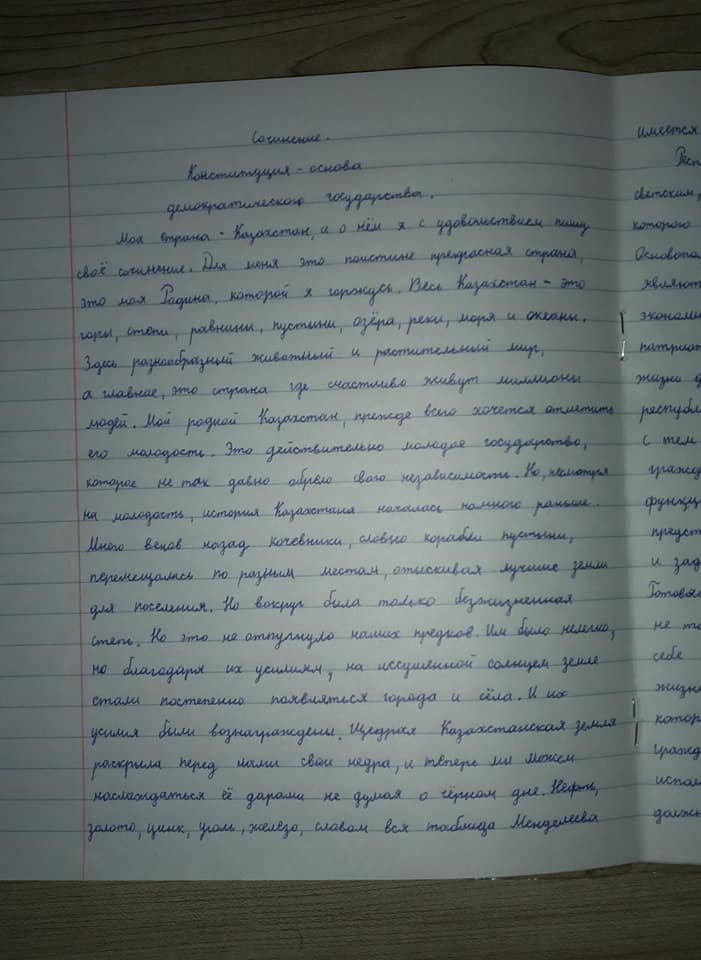 Сочинение.
Конституция - основа
демократического государства.
Моя страна - Казахстан, и о нём я с удовольствием пишу
своё сочинение. Для меня это поистине прекрасная страна,
это моя Родина, которой я горжусь. Весь Казахстан - это
горы, степи, равнины, пустыни, озёра, реки, моря и океаны.
Здесь разнообразный животный и растительный мир,
а главное, это страна где счастливо живут миллионы
людей. Мой родной Казахстан, прежде всего хочется отметить
его молодость. Это действительно молодое государство,
которое не так давно обрело свою независимость. Но, несмотря
на молодость, история Казахстана началась намного раньше.
Много веков назад кочевники, словно корабли пустыни,
перемещались по разным местам, отыскивая лучшие земли
для поселения. Но вокруг была только безжизненная
степь. Но это не отпугнуло наших предков. Им было нелегко,
но благодаря их усилиям, на иссушенной солнцем земле
стали постепенно появляться города и сёла. И их
усилия были вознаграждены. Щедрая Казахстанская земля
раскрыла перед нами свои недра, и теперь мы можем
наслаждаться её дарами не думая о чёрном дне. Нефть,
золото, цинк, уголь, железо, словом вся таблица Менделеева
имеется
Респ
светским,
которого
Основопо
являют
экономи
патриот
жизни
республи
с тем
гражд
функци
предст
и зад
Готовя
не то
себе
жизн
котор
гражд
испол
должн